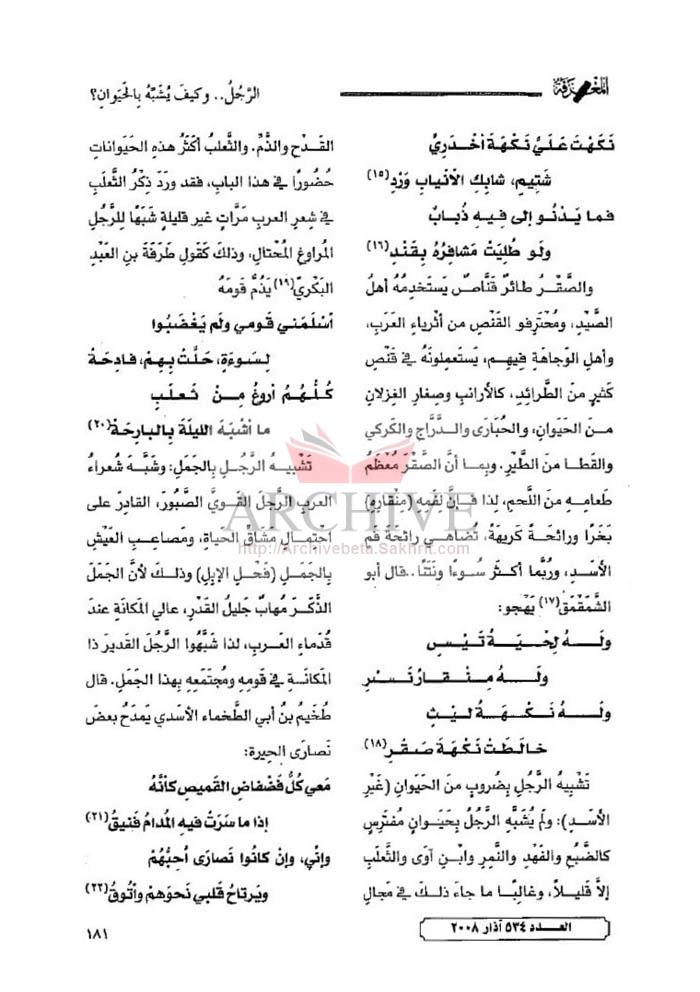 المعرفة
الرَّجُلُ.. وكيفَ يُشَبَّهُ بِالحَيَوانِ؟
نَكَهْتَ عَلَيَّ نَكْهَةَ أخْدَرِيٍّ
شَتِيمٍ، شابِكِ الأنْيابِ وَرْدِ(١٥)
فما يَدْنُو إلى فِيهِ ذُبابٌ
ولَو طُلِيَتْ مَشافِرُهُ بِقَنْدِ(١٦)
والصَّقْرُ طائرٌ قَنَّاصٌ يَستخدِمُهُ أهلُ
الصَّيْدِ، ومُحْتَرِفو القَنْصِ من أثرياءِ العَرَبِ،
وأهلِ الوَجاهَةِ فِيهِم، يَستَعمِلونَهُ في قَنْصِ
كَثيرٍ مِنَ الطَّرائِدِ، كالأرانبِ وصِغارِ الغِزلانِ
مِنَ الحَيَوانِ، والحُبَارَى والدَّرَّاجِ والكَركي
والقَطا مِنَ الطَّيْرِ. وبِما أنَّ الصَّقْرَ مُعْظَمُ
طَعامِهِ مِنَ اللَّحمِ، لِذا فإنَّ لِفَمِهِ (مِنْقارِهِ)
بَخَرًا ورائحَةً كَريهَةً، تُضاهي رائحَةَ فَمِ
الأسَدِ، ورُبَّما أكثَرَ سُوءًا ونَتَنًا.. قال أبو
الشَّمَقْمَقِ(١٧) يَهْجو:
ولَـــهُ لِحْيَـةُ تَيْـسٍ
ولَـــهُ مِنْـقـارُ نَسْـرِ
ولَـــهُ نَكْهَـةُ لَيْـثٍ
خـالَطَتْ نَكْهَةَ صَقْـرِ(١٨)
تَشْبِيهُ الرَّجُلِ بِضُروبٍ مِنَ الحَيَوانِ (غَيْرِ
الأسَدِ): ولَمْ يُشَبَّهِ الرَّجُلُ بِحَيَوانٍ مُفتَرِسٍ
كالضَّبُعِ والفَهْدِ والنَّمِرِ وابْنِ آوَى والثَّعلَبِ
إلاَّ قَليلاً، وغالِبًا ما جاءَ ذلكَ في مَجالِ
القَدْحِ والذَّمِّ. والثَّعلبُ أكثَرُ هذِهِ الحَيَواناتِ
حُضُورًا في هذا البابِ، فقد ورَدَ ذِكْرُ الثَّعلَبِ
في شِعرِ العربِ مَرَّاتٍ غير قليلةٍ شَبَهًا لِلرَّجُلِ
المُراوِغِ المُحْتالِ، وذلكَ كَقَولِ طَرَفَةَ بنِ العَبْدِ
البَكْرِيِّ(١٩) يَذُمُّ قَومَهُ
أسْلَمَني قَومي ولَم يَغْضَبُوا
لِسَوءَةٍ، حَلَّتْ بِهِمْ، فادِحَهْ
كُلُّهُمُ أروَغُ مِنْ ثَعلَبٍ
ما أشْبَهَ الليلَةَ بِالبارِحَهْ(٢٠)
تَشْبِيهُ الرَّجُلِ بِالجَمَلِ: وشَبَّهَ شُعراءُ
العربِ الرجلَ القَويَّ الصَّبُورَ، القادِرَ على
احتِمالِ مشاقِّ الحياةِ، ومَصاعِبِ العَيْشِ
بِالجَمَلِ (فَحْلِ الإبِلِ) وذلكَ لأنَّ الجَمَلَ
الذَّكَرَ مُهابٌ جَليلُ القَدْرِ، عالي المَكانَةِ عندَ
قُدَماءِ العَرَبِ، لذا شَبَّهُوا الرَّجُلَ القَديرَ ذا
المَكانَةِ في قَومِهِ ومُجتَمَعِهِ بِهذا الجَمَلِ. قال
طُخَيْمُ بنُ أبي الطَّخماءِ الأسَدي يَمدَحُ بعضَ
نَصارَى الحِيرة:
مَعي كُلُّ فَضْفاضِ القَميصِ كأنَّهُ
إذا ما سَرَتْ فيهِ المُدامُ فَنيقُ(٢١)
وإنِّي، وإنْ كانُوا نَصارَى أُحِبُّهُمْ
ويَرتاحُ قَلبي نَحوَهُمْ وأتُوقُ(٢٢)
ARCHIVE
http://Archivebeta.Sakhrit.com
العـــدد ٥٣٤ آذار ٢٠٠٨
١٨١